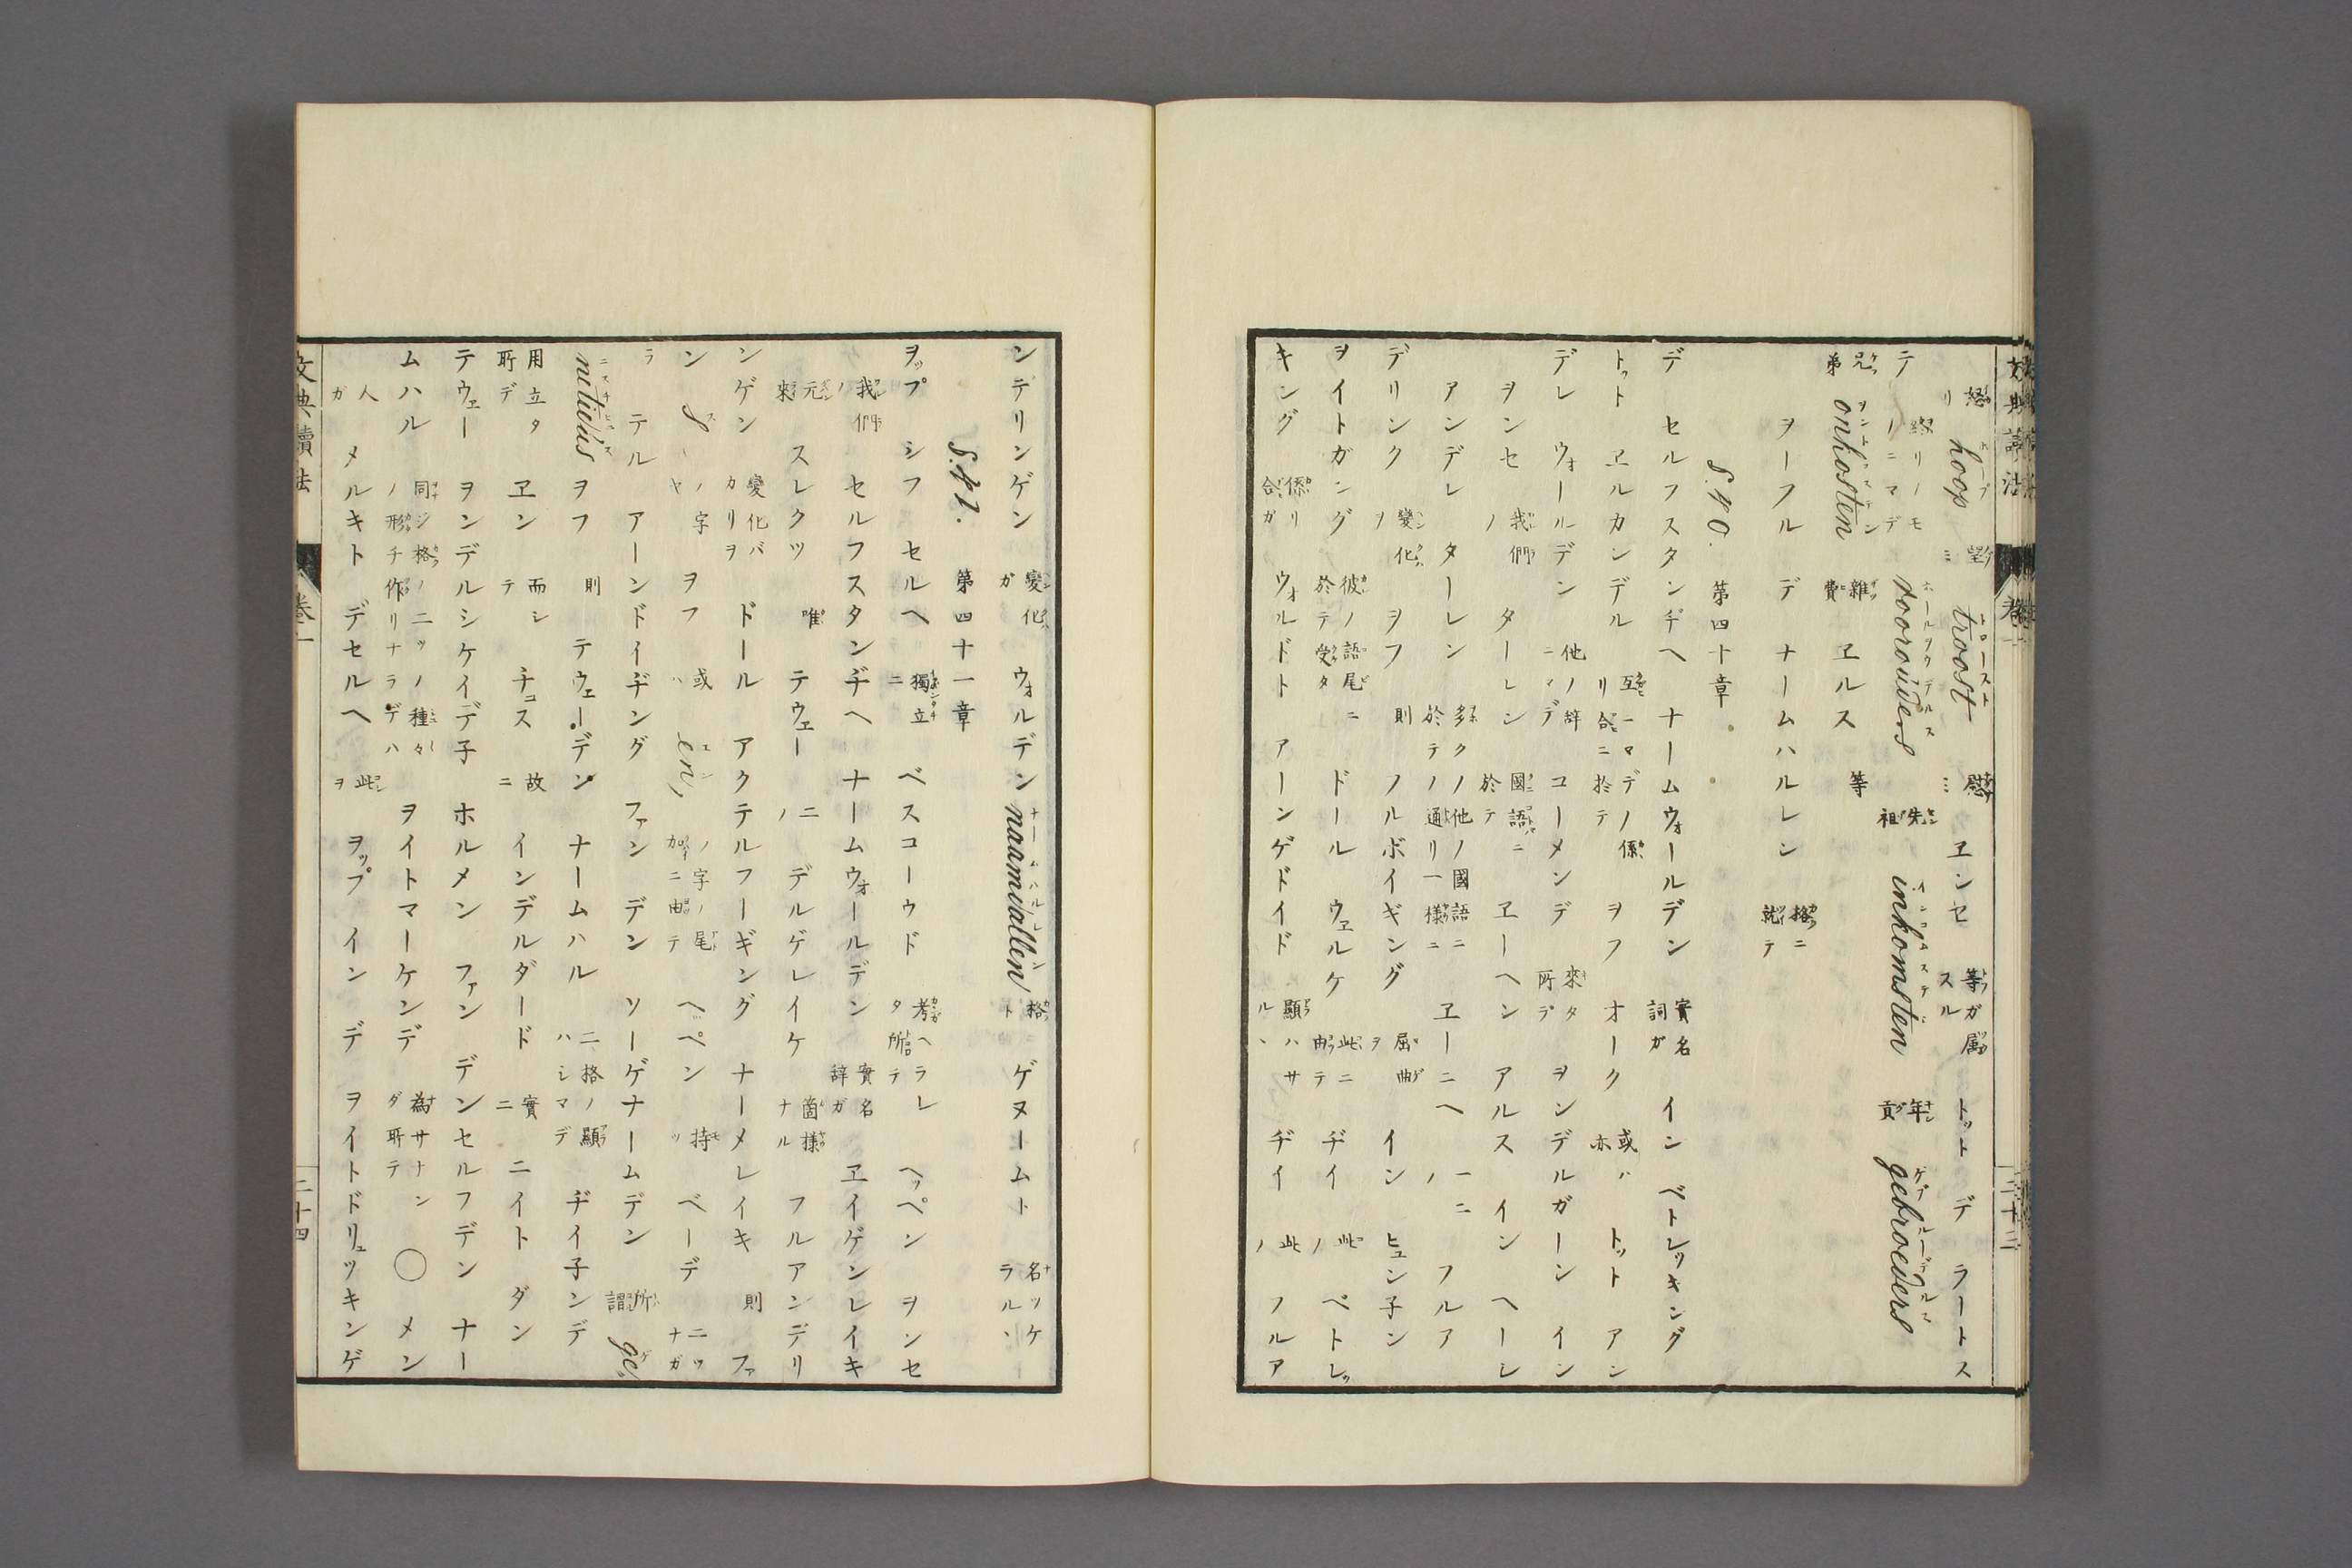 怒リ hoop ホープ 望ミ troost トロースト 慰ミ ヱンセ 等ガ属スル トット デ ラートス
テ 終リノモノニマデ voorouders ホールヲウデルス 先祖 inkomsten インコムステン 年貢 gebroeders ゲブルーデルス
兄弟 onkosten ヲンコステン 雜費 ヱルス 等
ヲーフル デ ナームハルレン 格ニ就テ
§.40. 第四十章
デ セルフスタンヂヘ ナームウォールデン 實名詞ガ イン ベトレッキング
トット ヱルカンデル 互ニマデノ係リ合ニ於テ ヲフ オーク 或ハ亦 トット アン
デレ ウォールデン 他ノ辞ニマデ コーメンデ 來タ所デ ヲンデルガーン イン
ヲンセ 我們ノ ターレン 國語ニ於テ ヱーヘン アルス イン ヘーレ
アンデレ ターレン 多クノ他ノ國語ニ於テノ通リ一様ニ ヱーニヘ 一ニノ フルア
デリンク 變化ヲ ヲフ 則 ノルボイギング 屈曲ヲ イン ヒュン子ン
ヲイトガング 彼ノ語尾ニ於テ受タ ドール ウェルケ 此ニ由テ ヂイ 此ノ ベトレッ
キング 係リ合ガ ウォルドト アーンゲドイド 顯ハサル丶 ヂイ 此ノ フルア
文典讀法 卷一 二十三
ンテリンゲン 變化ガ ウォルデン naamvallen ナームハルレン 格ト ゲヌームト 名ツケラル丶
§.41. 第四十一章
ヲップ シフ セルヘ 獨立ニ ベスコーウド 考ヘラレタ所テ ヘッペン ヲンセ
我們ノ セルフスタンヂヘ ナームウォールデン 實名辞ガ ヱイゲンレイキ
元來 スレクツ 唯 テウェー 二ノ デルゲレイケ 箇様ナル フルアンデリ
ンゲン 變化バカリヲ ドール アクテルフーギング ナーメレイキ 則 ファ
ン s スノ字ヤ ヲフ 或ハ en, エンノ字ノ尾加ニ由テ ヘペン 持ツ ベーデ 二ツナガ
ラ テル アーンドイヂング ファン デン ソーゲナームデン 所謂 ge
nitivus ニチヒュス ヲフ 則 テウェーデン ナームハル 二格ノ顯ハシマデ ヂイ子ンデ
用立タ所デ ヱン 而シテ チュス 故ニ インデルダード 實ニ ニイト ダン
テウェー ヲンデルシケイデ子 ホルメン ファン デンセルフデン ナー
ムハル 同ジ格ノ二ッノ種々ノ形チ作リナラデハ ヲイトマーケンデ 為サナンダ所テ ◯ メン
人ガ メルキト デセルヘ 此ヲ ヲップ イン デ ヲイトドリュッキンゲ
文典讀法 卷一 二十四